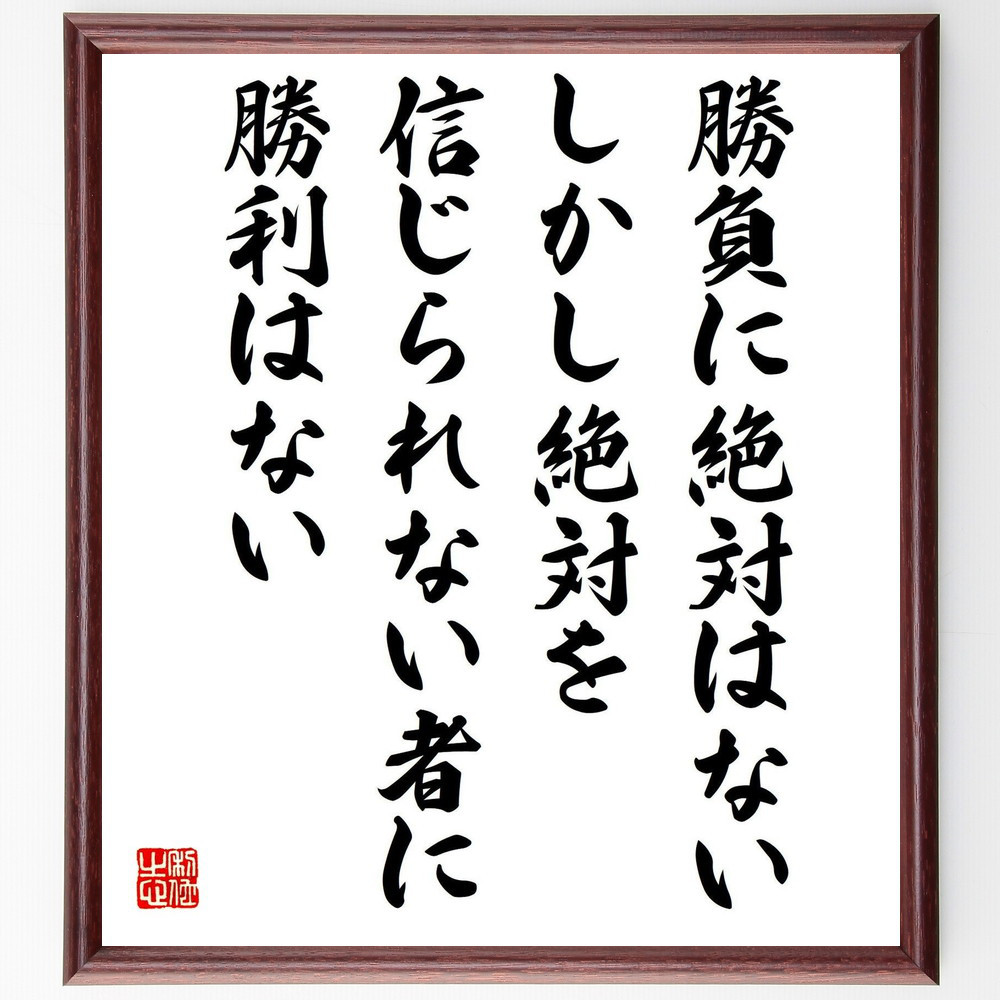 勝負に絶対はない
しかし絶対を
信じられない者に
勝利はない